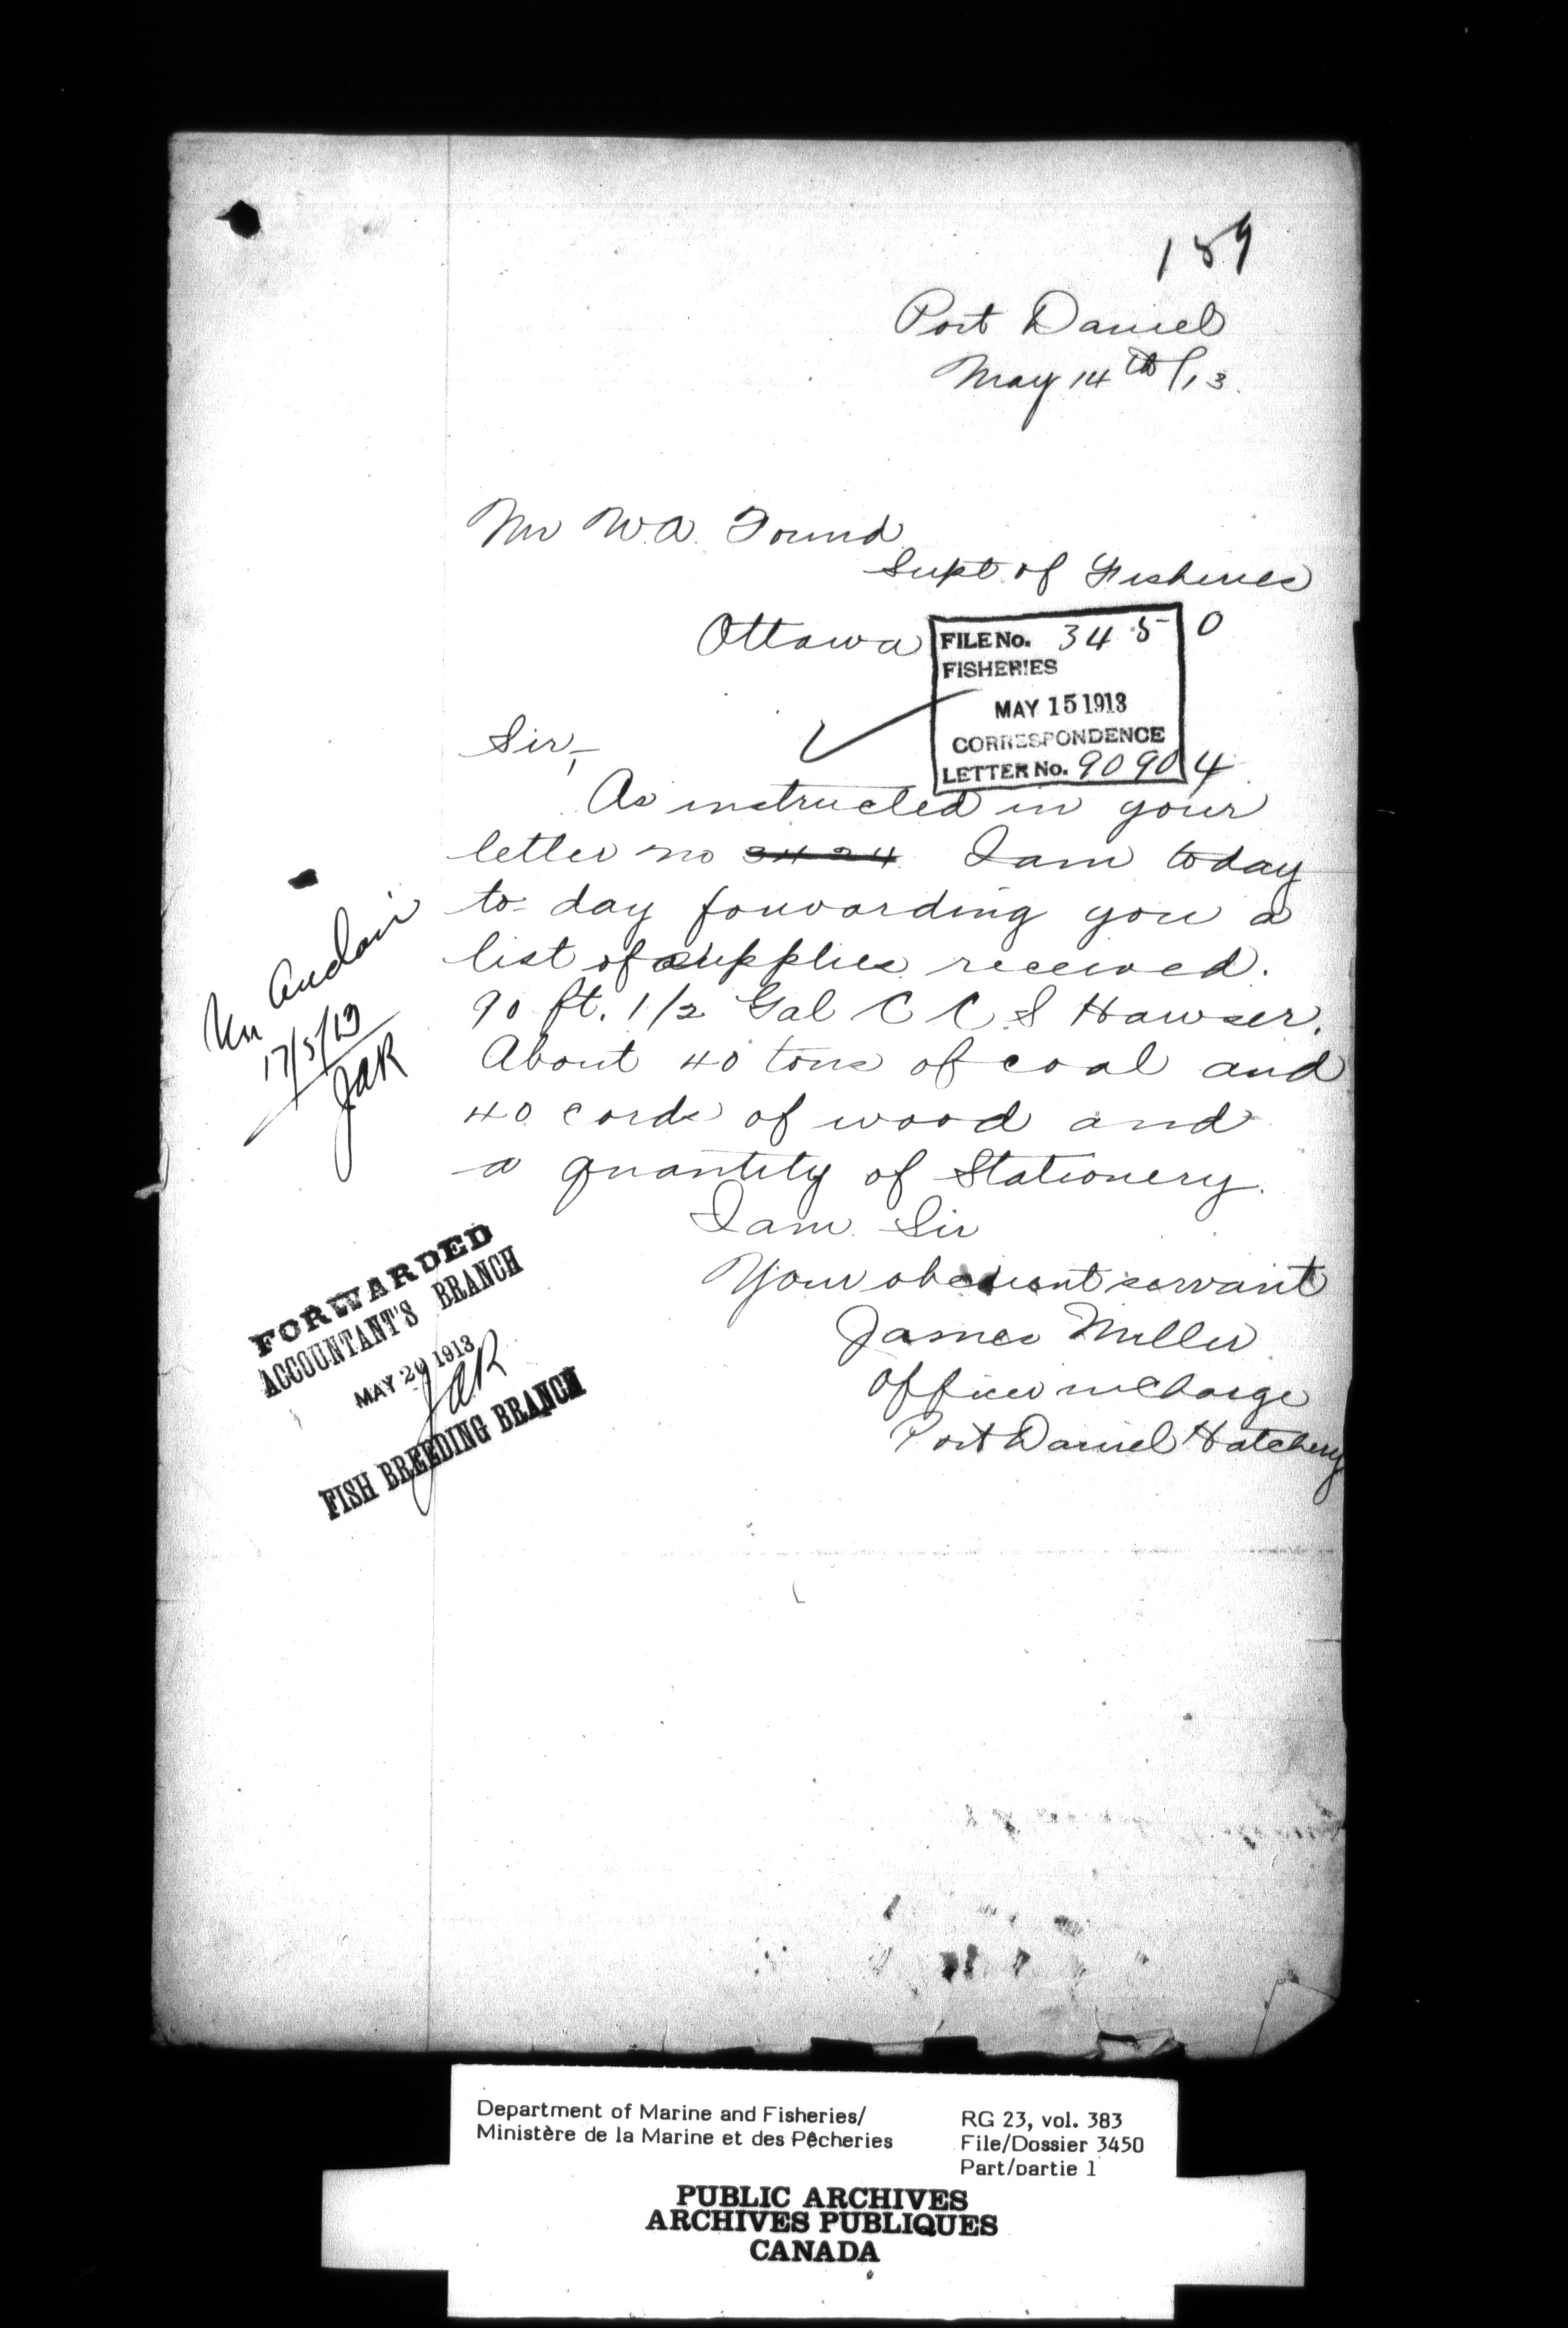 159
Port Daniel
May 14th/13.
Mr W.A. Found
Supt. of Fisheries
Ottawa
FILE No. 3450
FISHERIES
MAY 15 1913
CORRESPONDENCE
LETTER No. 90904
Sir,-
As instructed in your
letter no 3424 I am today
to-day forwarding you a
list of supplies received.
90 ft. 1/2 Gal C C S Hawser.
About 40 tons of coal and
40 cords of wood and
a quantity of Stationery.
I am Sir
Your obedient servant
James Miller
Officer in Charge
Port Daniel Hatchery
Mr Auclair
17/5/13
JAR
FORWARDED
ACCOUNTANT'S BRANCH
MAY 20 1913
JAR
FISH BREEDING BRANCH
Department of Marine and Fisheries/
Ministère de la Marine et des Pêcheries
RG 23, vol. 383
File/Dossier 3450
Part/partie 1
PUBLIC ARCHIVES
ARCHIVES PUBLIQUES
CANADA